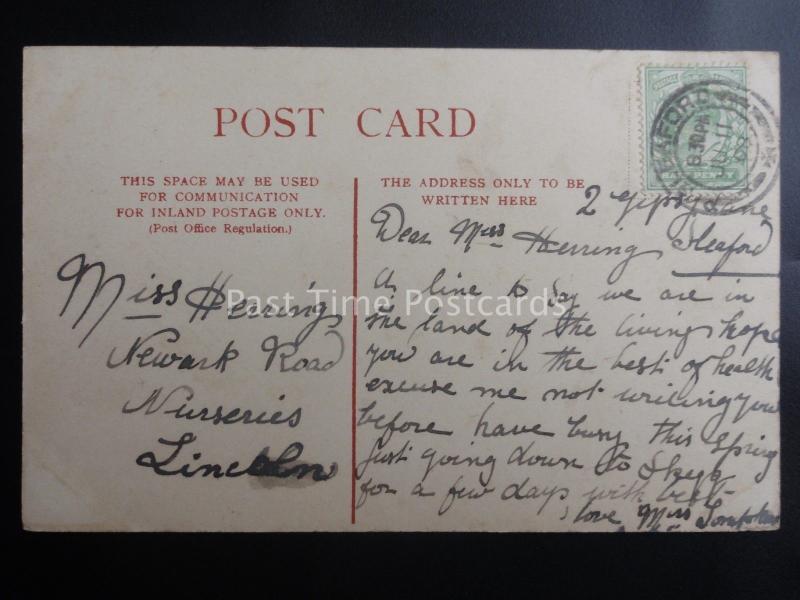 POST CARD
THIS SPACE MAY BE USED
FOR COMMUNICATION
FOR INLAND POSTAGE ONLY.
(Post Office Regulation.)
THE ADDRESS ONLY TO BE
WRITTEN HERE
Miss Herring
Newark Road
Nurseries
Lincoln
2 Gipsy Lane
Sleaford
Dear Miss Herring
A line to say we are in
the land of the living hope
you are in the best of health
excuse me not writing you
before have busy this spring
just going down to Skeg
for a few days with best
love Miss
HALFPENNY
Past Time Postcards